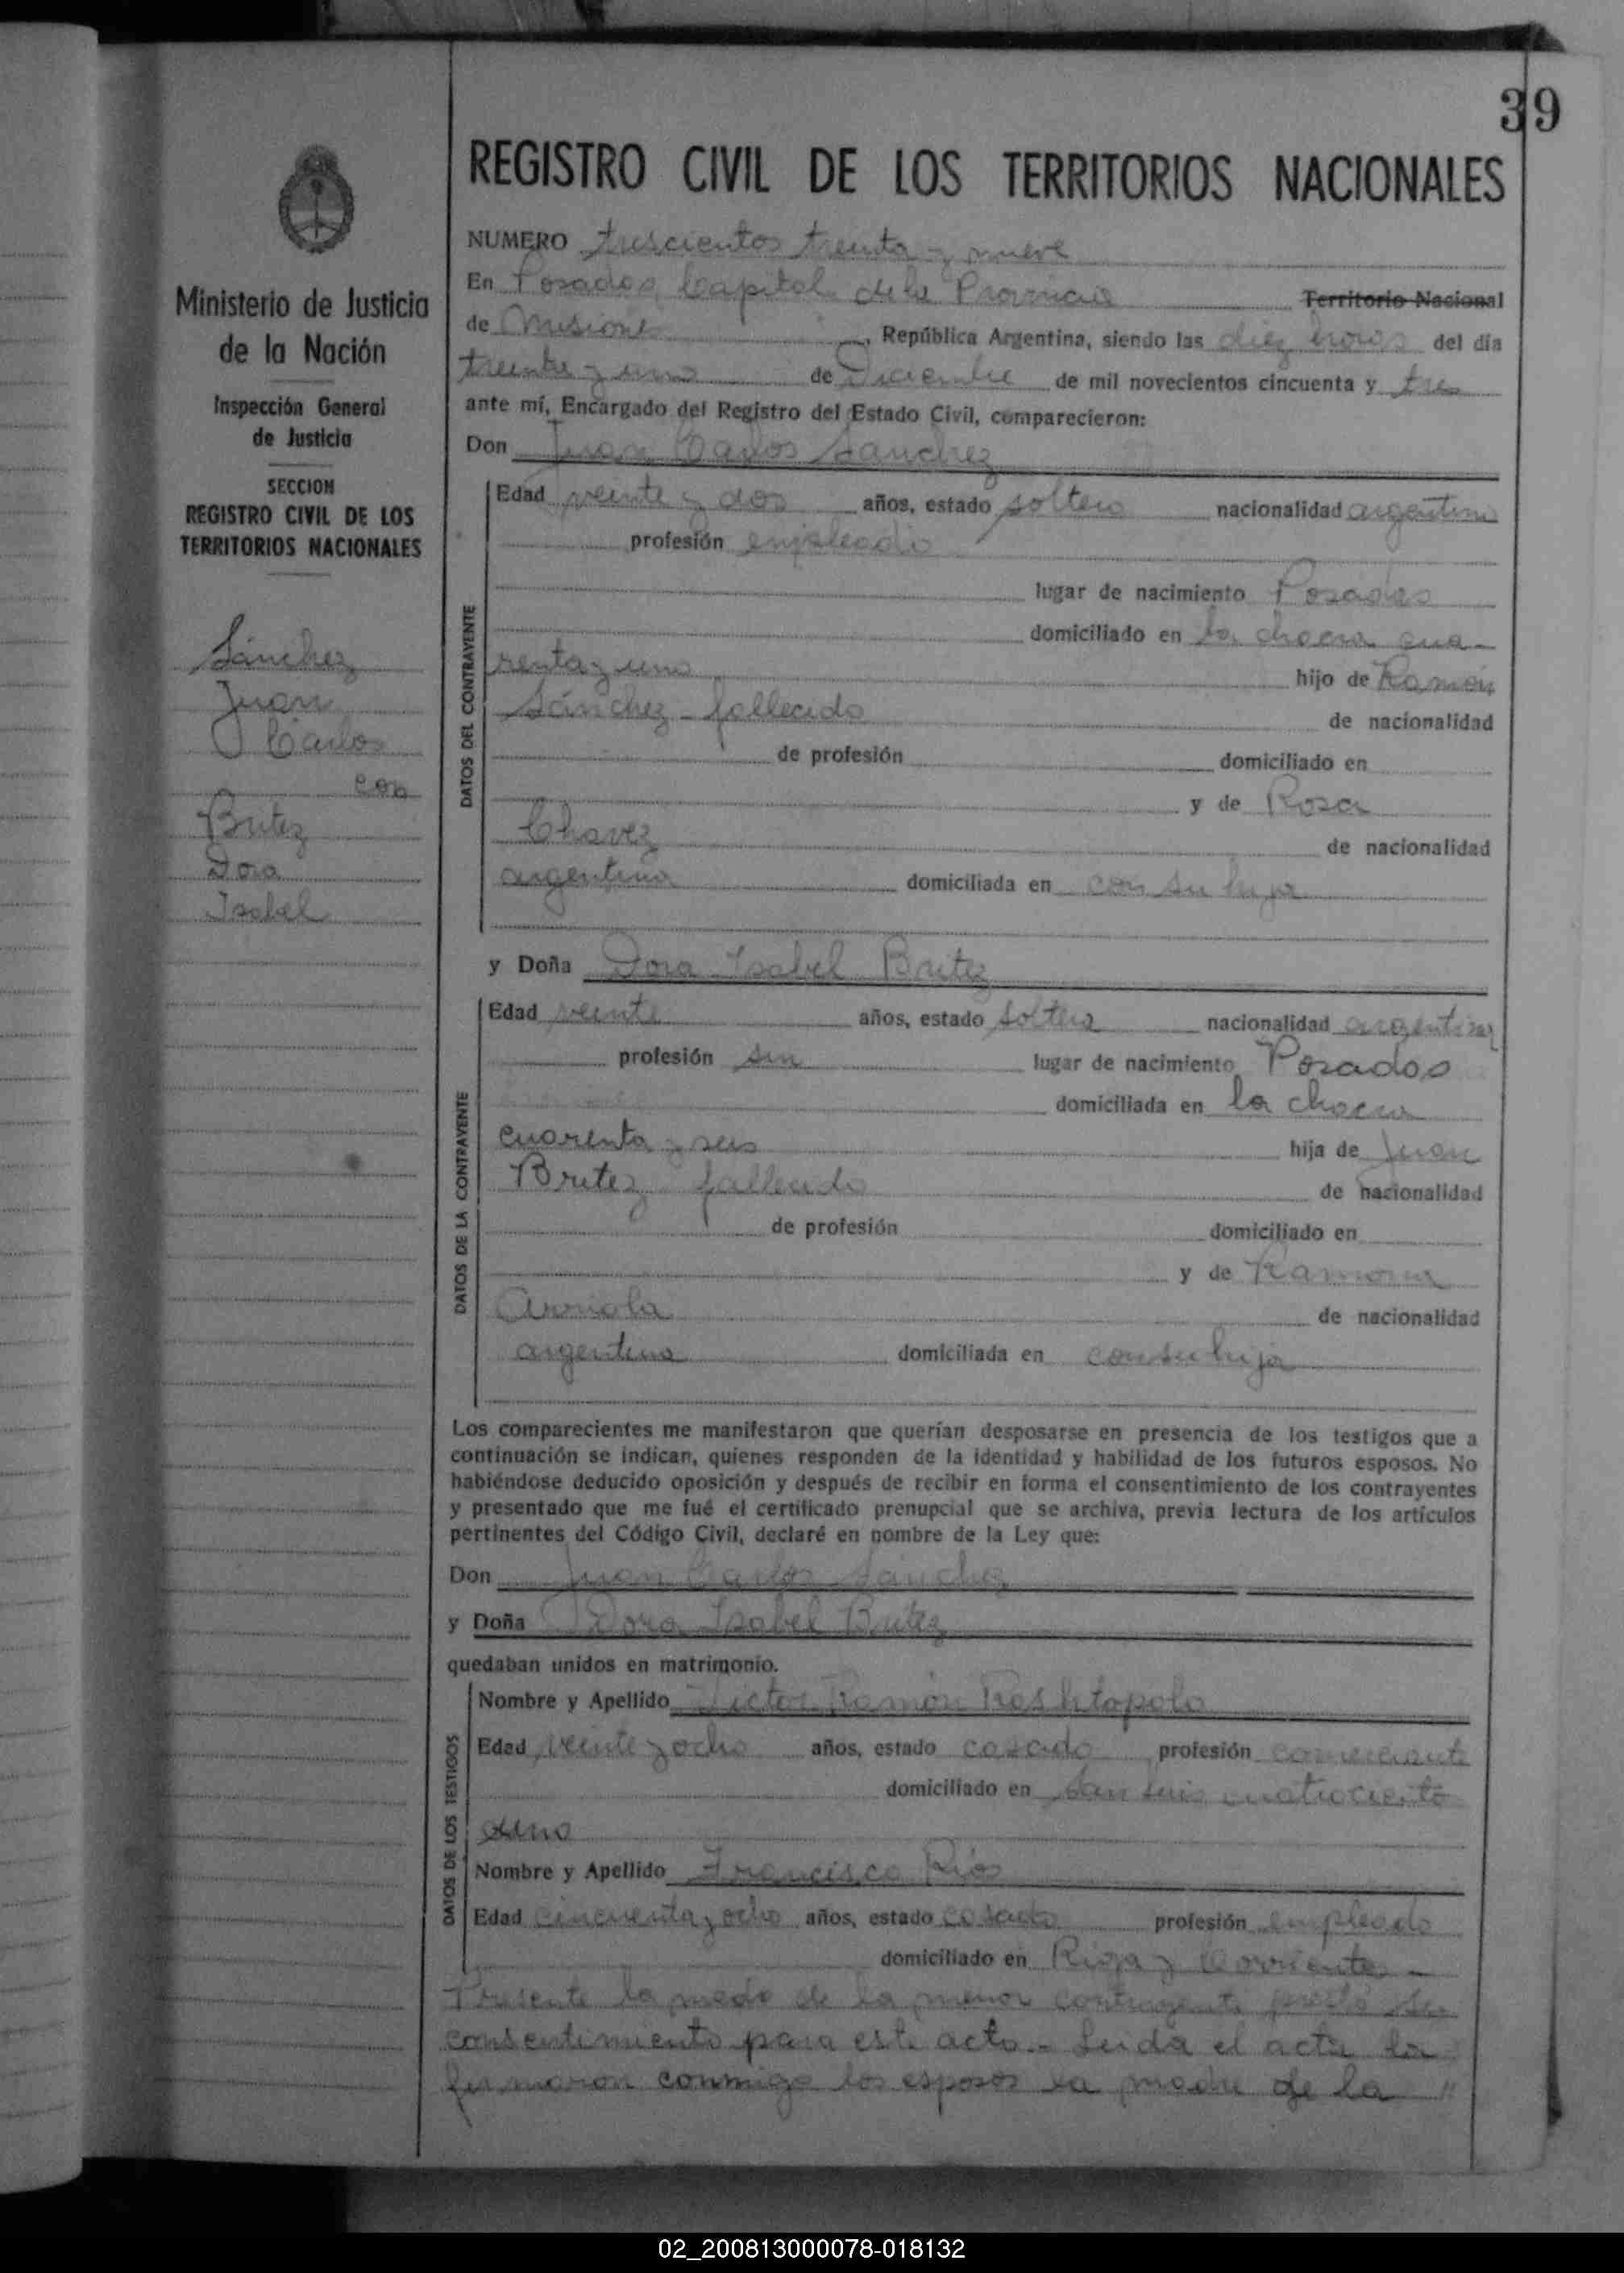 39
REGISTRO CIVIL DE LOS TERRITORIOS NACIONALES
Ministerio de Justicia
de la Nación
Inspección General
de Justicia
SECCION
REGISTRO CIVIL DE LOS
TERRITORIOS NACIONALES
Sánchez
Juan
Carlos
con
Britez
Dora
Isabel
NUMERO trescientos treinta y nueve
En Posadas, Capital de la Provincia Territorio Nacional
de Misiones, República Argentina, siendo las diez horas del día
treinta y uno de Diciembre de mil novecientos cincuenta y tres
ante mí, Encargado del Registro del Estado Civil, comparecieron:
Don Juan Carlos Sanchez
DATOS DEL CONTRAYENTE
Edad veinte y dos años, estado soltero nacionalidad argentino
profesión empleado
lugar de nacimiento Posadas
domiciliado en la chacra cua-
renta y uno hijo de Ramón
Sánchez fallecido de nacionalidad
de profesión domiciliado en
y de Rosa
Chavez de nacionalidad
argentina domiciliada en con su hija
y Doña Dora Isabel Britez
DATOS DE LA CONTRAYENTE
Edad veinte años, estado soltera nacionalidad argentina
profesión sin lugar de nacimiento Posadas
domiciliada en la chacra
cuarenta y seis hija de Juan
Britez fallecido de nacionalidad
de profesión domiciliado en
y de Ramona
Arriola de nacionalidad
argentina domiciliada en con su hija
Los comparecientes me manifestaron que querían desposarse en presencia de los testigos que a
continuación se indican, quienes responden de la identidad y habilidad de los futuros esposos. No
habiéndose deducido oposición y después de recibir en forma el consentimiento de los contrayentes
y presentado que me fué el certificado prenupcial que se archiva, previa lectura de los artículos
pertinentes del Código Civil, declaré en nombre de la Ley que:
Don Juan Carlos Sanchez
y Doña Dora Isabel Britez
quedaban unidos en matrimonio.
DATOS DE LOS TESTIGOS
Nombre y Apellido Victor Ramón
Edad veinte y ocho años, estado casado profesión comerciante
domiciliado en San Luis cuatrociento
uno
Nombre y Apellido Francisco Rios
Edad cincuenta y ocho años, estado casado profesión empleado
domiciliado en Rioja y Corrientes -
Presente la madre de la menor contrayente prestó su
consentimiento para este acto.- Leida el acta la
firmaron conmigo los esposos la madre de la "
02_200813000078-018132